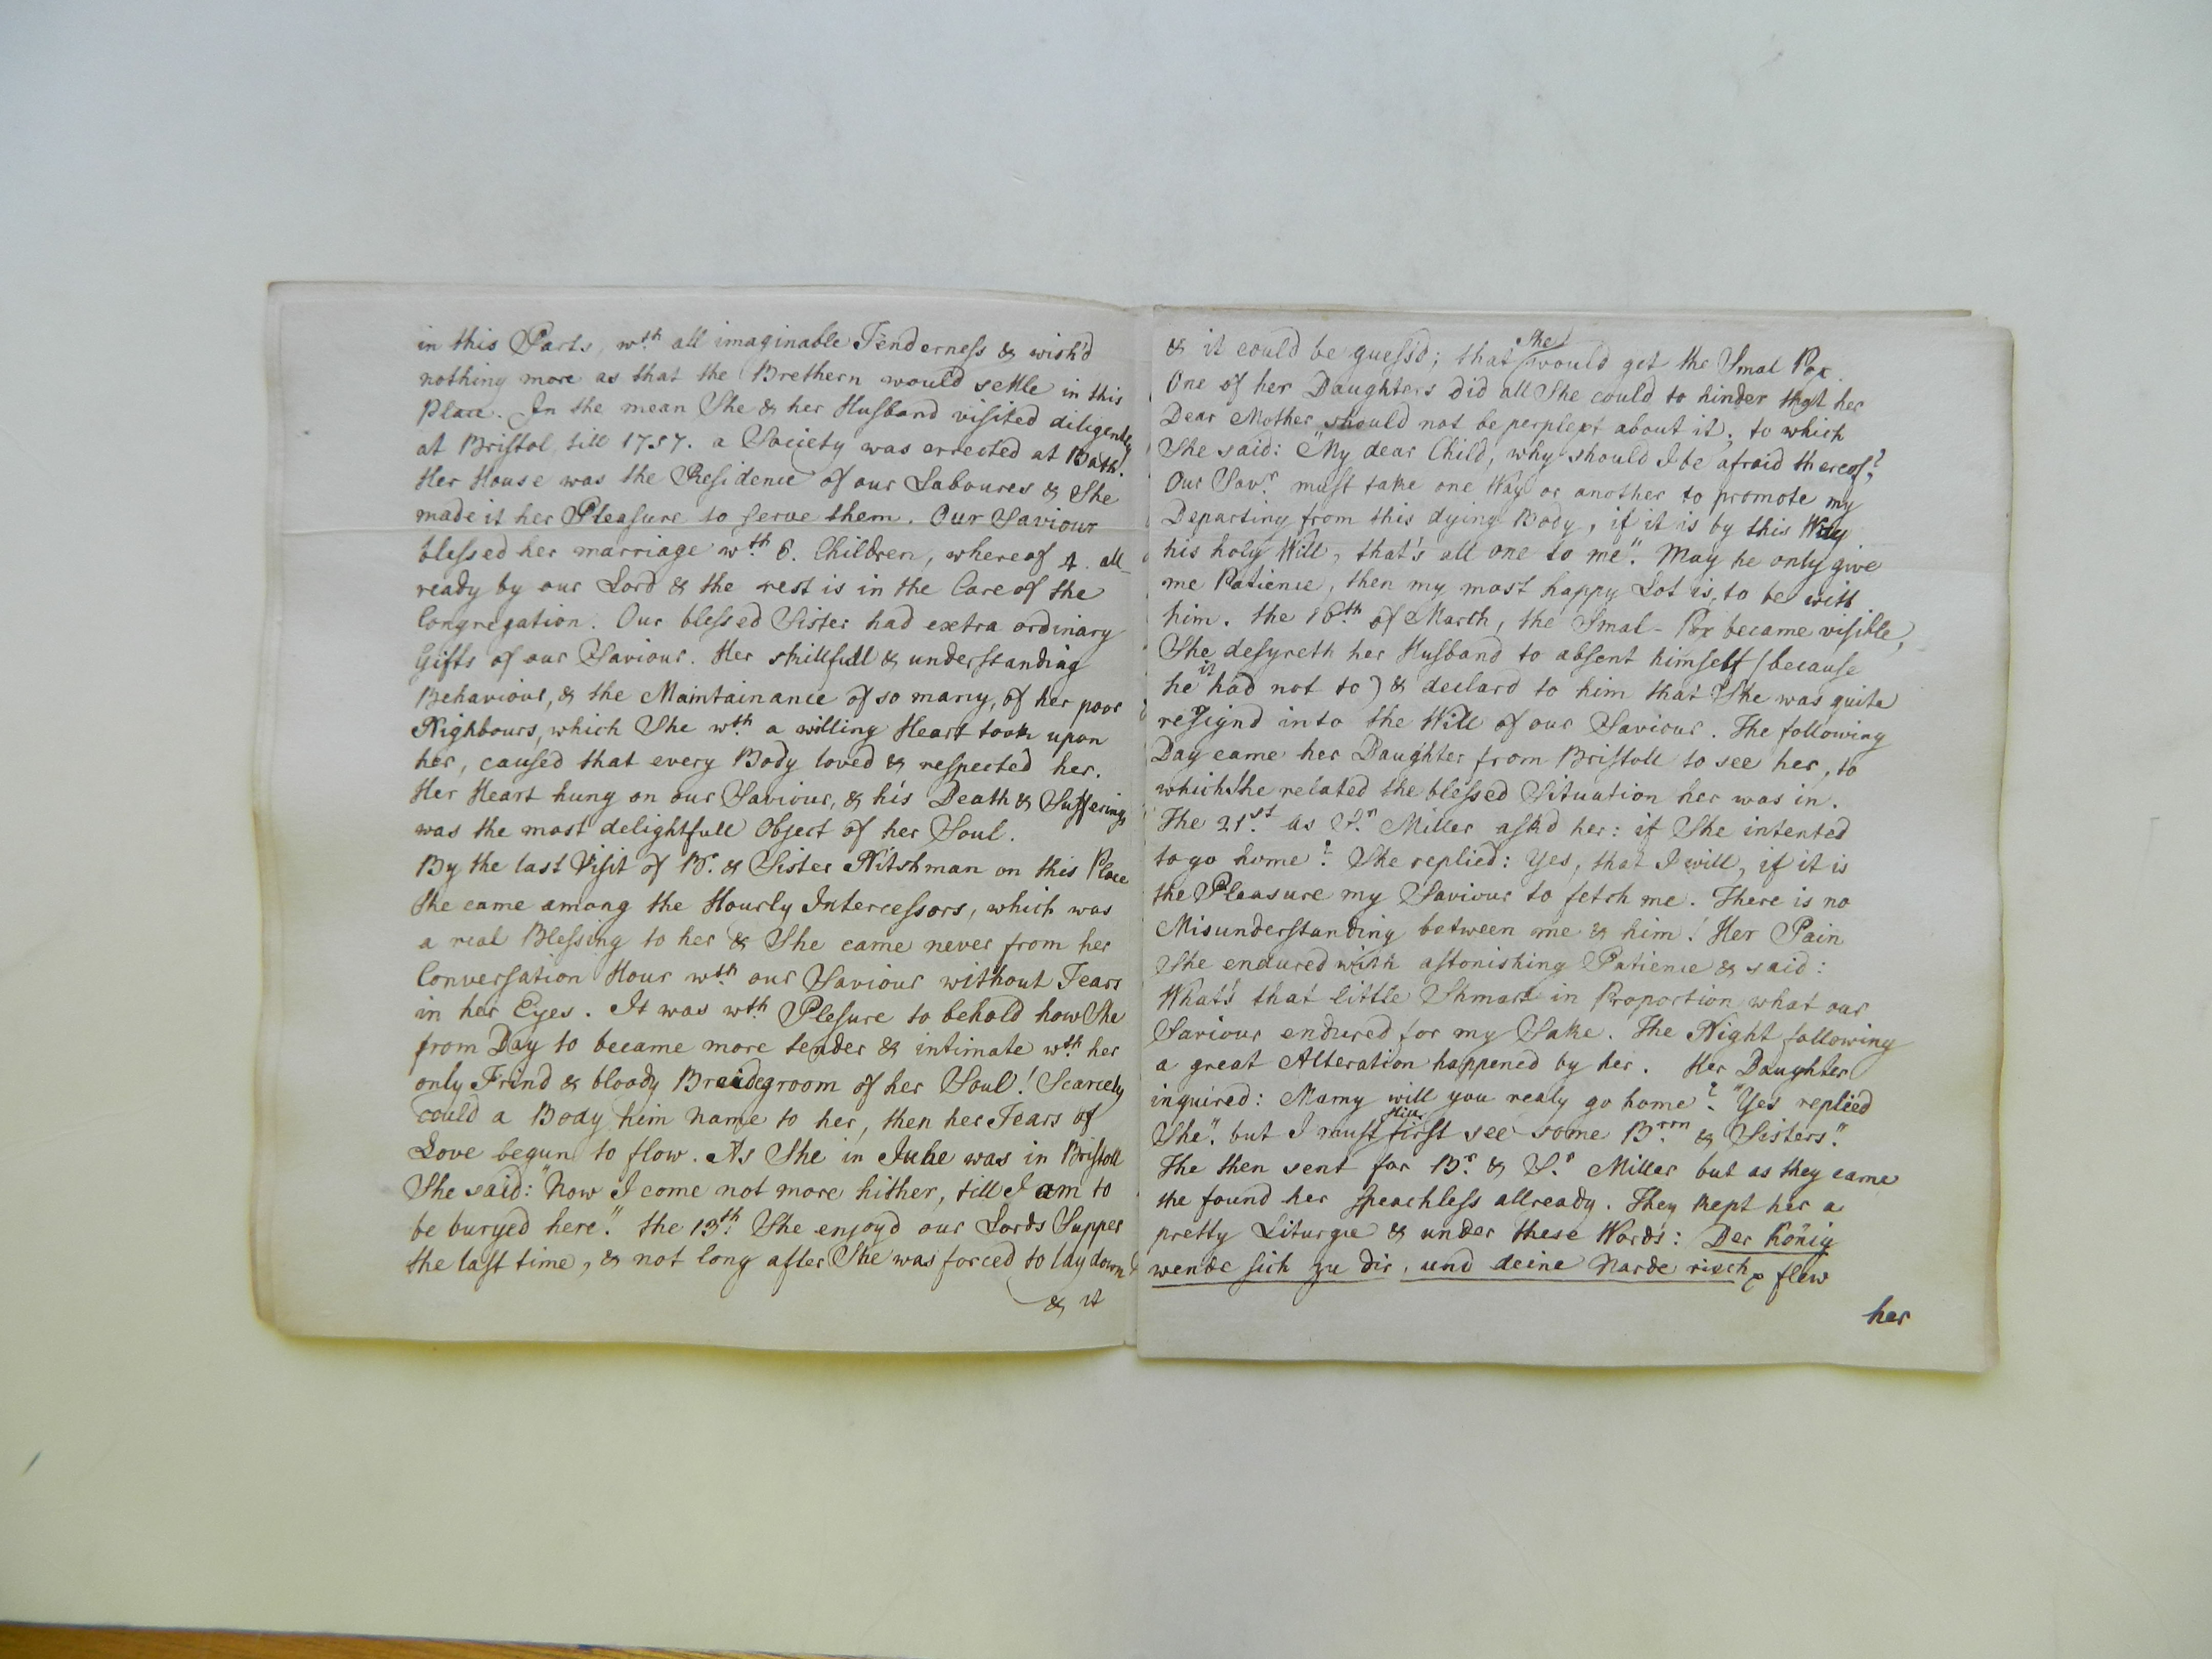 in this Parts, wth all imaginable Tenderness & wish'd
nothing more as that the Brethern would settle in this
Place. In the mean She & her Husband visited diligently
at Bristol, till 1757. a Society was errected at Bath.
Her House was the Residence of our Laboures & She
made it her Pleasure to serve them. Our Saviour
blessed her marriage wth 8. Children, whereof 4. all-
ready by our Lord & the rest is in the Care of the
Congregation. Our blessed Sister had extra ordinary
Gifts of our Saviour. Her skillfull & understanding
Behaviour, & the Maintainance of so many, of her poor
Nighbours, which She wth a willing Heart took upon
her, caused that every Body loved & respected her.
Her Heart hung on our Saviour, & his Death & Sufferings
was the most delightfull Object of her Soul.
By the last Visit of Br. & Sister Nitshman on this Place
She came among the Hourly Intercessors, which was
a real Blessing to her & She came never from her
Conversation Hour wth our Saviour without Tears
in her Eyes. It was wth Plesure to behold how She
from Day to became more tender & intimate wth her
only Frind & bloody Breidegroom of her Soul! Scarcely
could a Body him name to her, then her Tears of
Love begun to flow. As She in June was in Bristoll
She said: "Now I come not more hither, till I am to
be buryed here." the 13th She enjoyd our Lords Supper
the last time, & not long after She was forced to lay down
& it
& it could be guess'd; that She would get the Smal Pox.
One of her Daughters did all She could to hinder that her
Dear Mother should not be perplext about it; to which
She said: "My dear Child, why should I be afraid thereof?
Our Savr. must take one Way or another to promote my
Departing from this dying Body, if it is by this Way
his holy Will, that's all one to me." May he only give
me Patience, then my most happy Lot is, to be with
him. the 18th of March, the Smal-Pox became visible,
She desyreth her Husband to absent himself (because
he it had not to) & declard to him that She was quite
resignd into the Will of our Saviour. The following
Day came her Daughter from Bristoll to see her, to
which She related the blessed Situation her was in.
The 21st. as Sr. Miller ask'd her: if She intented
to go home? She replied: Yes, that I will, if it is
the Pleasure my Saviour to fetch me. There is no
Misunderstanding between me & him! Her Pain
She endured with astonishing Patience & said:
What's that little Shmart in Proportion what our
Saviour endured for my Sake. The Night following
a great Alteration happened by her. Her Daughter
inquired: Mamy will you realy go home? "Yes replied
She". but I must first see some Brrn & Sisters."
The then sent for Br. & Sr. Miller but as they came
the found her speachless allready. They kept her a
pretty Liturgie & under these Words: Der König
wende sich zu dir, und deine Narde riech flew
her